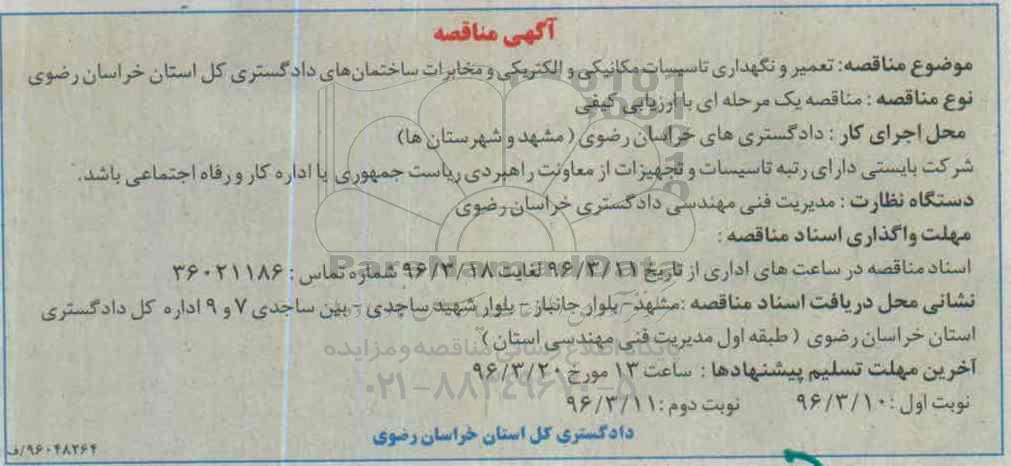 آگهی مناقصه
موضوع مناقصه: تعمیر و نگهداری تاسیسات مکانیکی و الکتریکی و مخابرات ساختمان‌های دادگستری کل استان خراسان رضوی
نوع مناقصه : مناقصه یک مرحله ای با ارزیابی کیفی
محل اجرای کار : دادگستری های خراسان رضوی ( مشهد و شهرستان ها)
شرکت بایستی دارای رتبه تاسیسات و تجهیزات از معاونت راهبردی ریاست جمهوری یا اداره کار و رفاه اجتماعی باشد.
دستگاه نظارت : مدیریت فنی مهندسی دادگستری خراسان رضوی
مهلت واگذاری اسناد مناقصه :
اسناد مناقصه در ساعت های اداری از تاریخ ۹۶/۳/۱۱ لغایت ۹۶/۳/۱۸ شماره تماس : ۳۶۰۲۱۱۸۶
ParsNamadData
نشانی محل دریافت اسناد مناقصه :مشهد- بلوار جانباز - بلوار شهید ساجدی - بین ساجدی ۷ و ۹ اداره کل دادگستری
استان خراسان رضوی ( طبقه اول مدیریت فنی مهندسی استان )
پایگاه اطلاع رسانی مناقصه و مزایده
آخرین مهلت تسلیم پیشنهادها : ساعت ۱۳ مورخ ۹۶/۳/۲۰
۰۲۱-۸۸۳۴۹۶۷۰-۵
نوبت اول :۹۶/۳/۱۰ نوبت دوم :۹۶/۳/۱۱
دادگستری کل استان خراسان رضوی
۹۶۰۴۸۲۶۴/ف